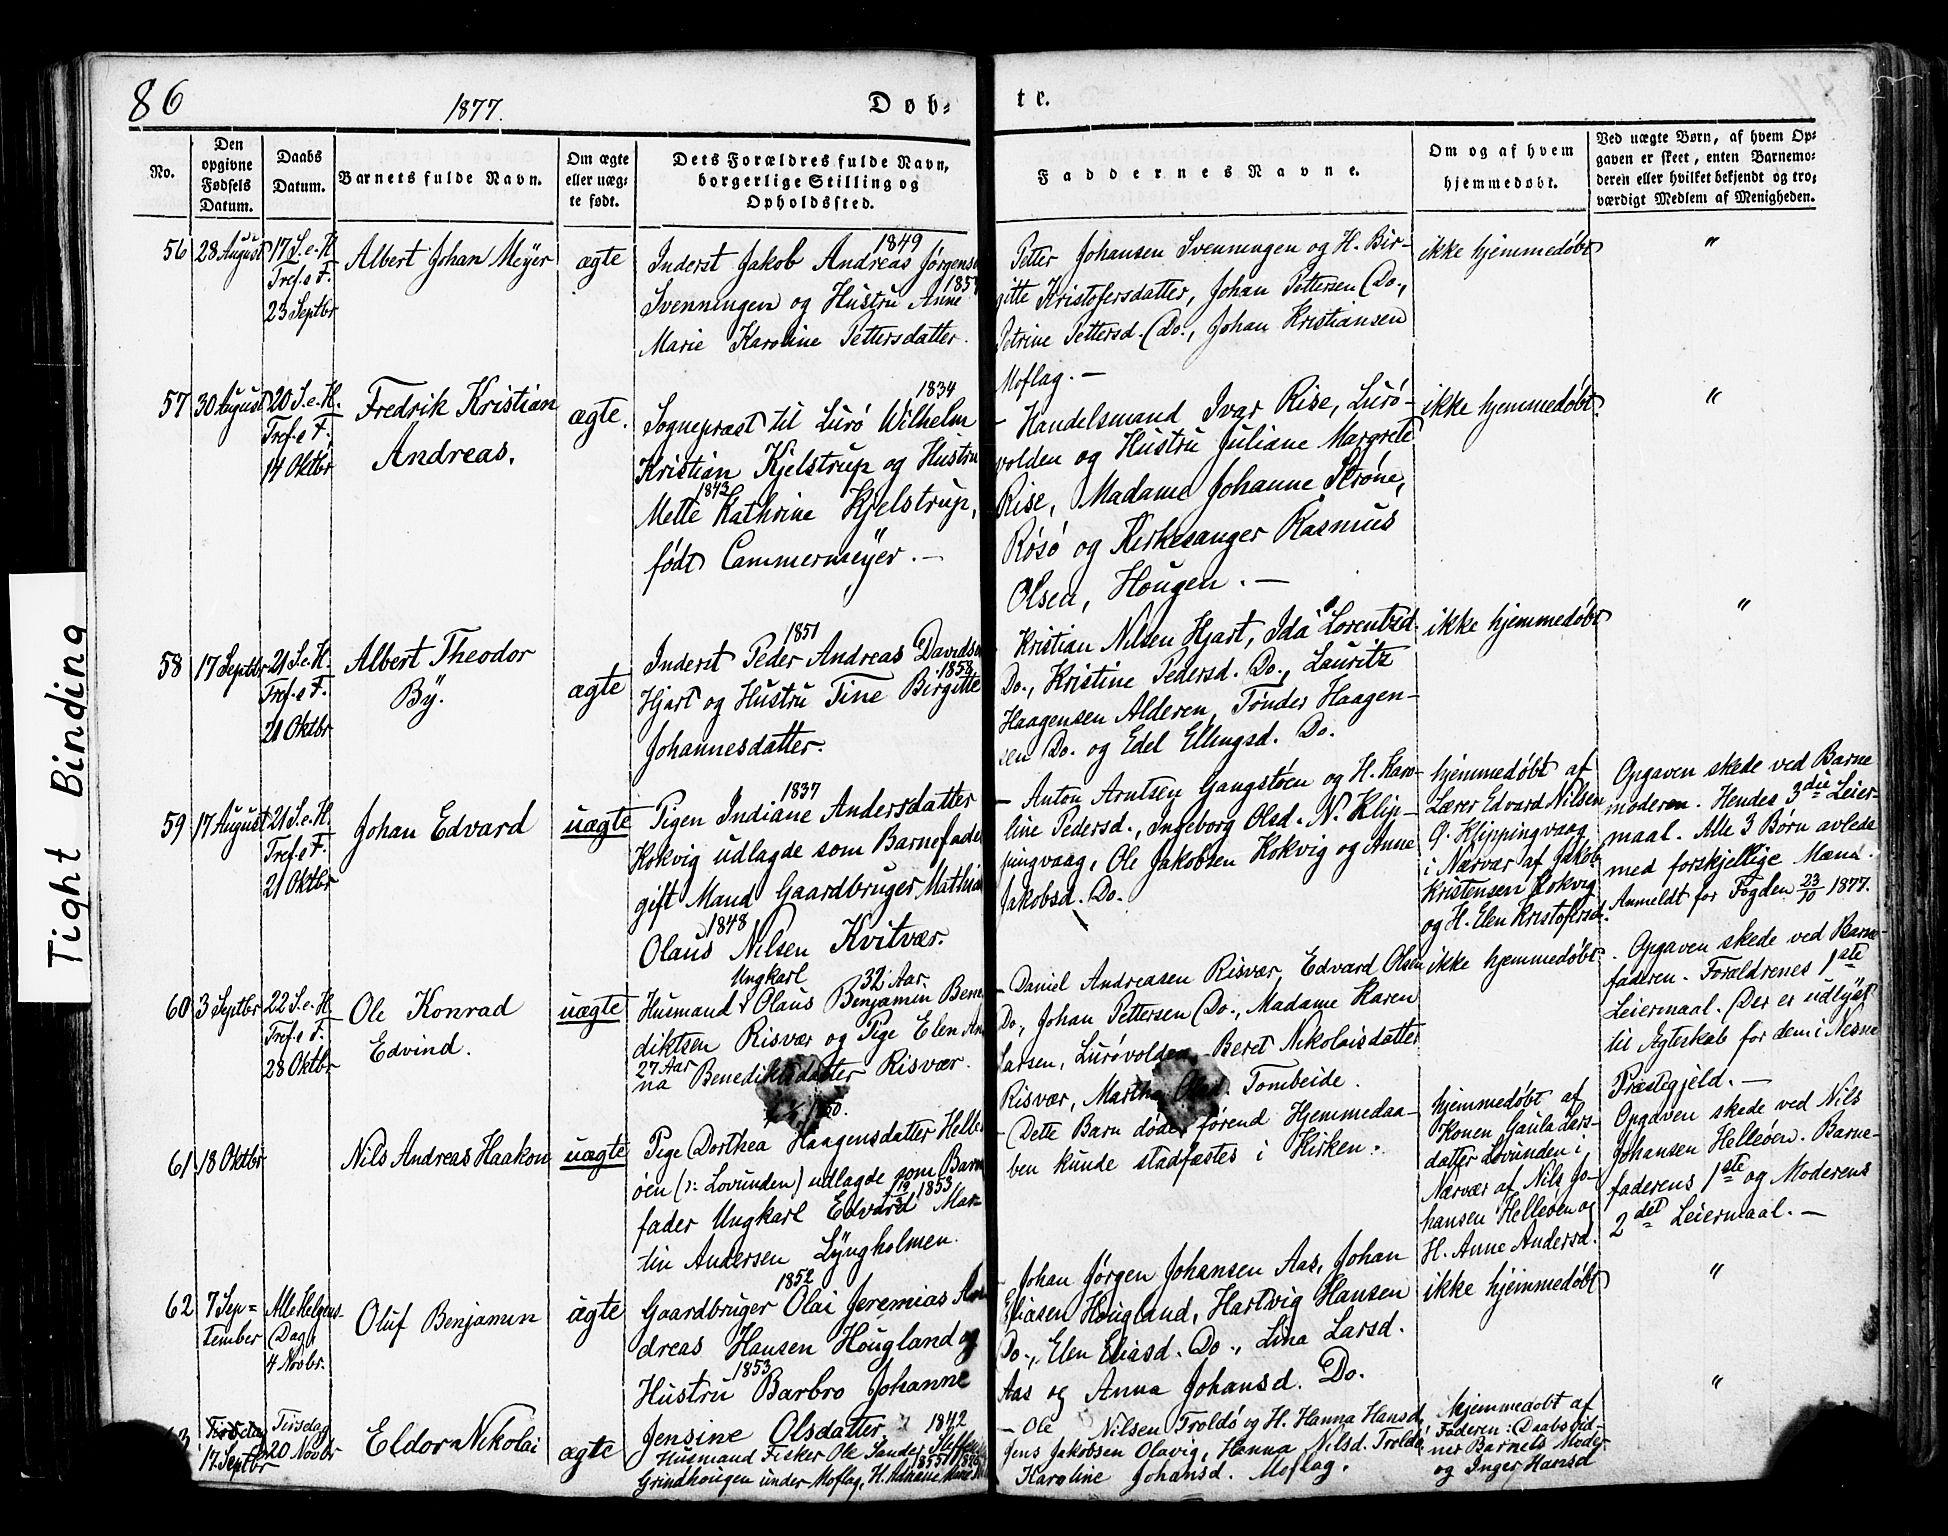 86
1877.
Døb=
te.
Tight Binding
No.
Den
opgivne
Fødsels
Datum.
Daabs
Datum.
Barnets fulde Navn.
Om ægte
eller uæg=
te født.
Dets Forældres fulde Navn,
borgerlige Stilling og
Opholdssted.
Faddernes Navne.
Om og af hvem
hjemmedøbt.
Ved uægte Børn, af hvem Op=
gaven er skeet, enten Barnemo=
deren eller hvilket bekjendt og tro=
værdigt Medlem af Menigheden.
56
28 August
17 S. e. H.
Tref. s F.
23 Septbr
Albert Johan Meyer
ægte
1849
Inderst Jakob Andreas Jørgens
Svenningen og Hustru Anne
Marie Karoline Pettersdatter.
Petter Johansen Svenningen og H. Bir-
gitte Kristofersdatter, Johan Pettersen Do.,
Petrine Pettersd. Do., Johan Kristiansen
Moflag. —
ikke hjemmedøbt
"
57
30 August
20 S. e. H.
Tref. s F.
14 Oktbr
Fredrik Kristian
Andreas.
ægte.
1834
Sogneprast til Lurø Wilhelm
Kristian Kjelstrup og Hustru
1843
Mette Kathrine Kjelstrup,
født Cammermeyer. —
- Handelsmand Ivar Rise, Lurø-
volden og Hustru Juliane Margrete
Rise, Madame Johanne Strøne,
Røsø og Kirkesanger Rasmus
Olsen, Hougen. —
ikke hjemmedøbt.
"
58
17 Septbr
21 S. e. H.
Tref. s F.
21 Oktbr
Albert Theodor
By.
ægte
1851
Inderst Peder Andreas Davids
1858
Hjart og Hustru Tine Birgitte
Johannesdatter.
Kristian Nilsen Hjart, Ida Lorentzd.
Do., Kristine Pedersd. Do., Lauritz
Haagensen Alderen, Tønder Haagen-
sen Do. og Edel Ellingsd. Do.
ikke hjemmedøbt
"
59
17 August
21 S. e. H.
Tref. s F.
21 Oktbr
Johan Edvard
uægte
1837
Pigen Indiane Andersdatter
Kokvig udlagde som Barnefade
gift Mand Gaardbruger Mathia
1848
Olaus Nilsen Kvitvær.
- Anton Arntsen Gangstøen og H. Karo-
line Pedersd., Ingeborg Olsd. N. Klip-
pingvaag, Ole Jakobsen Kokvig og Anne
Jakobsd. Do.
hjemmedøbt af
Lærer Edvard Nilsen
Ø. Klippingvaag
i Nærvær af Jakob
Kristensen Kokvig
og H. Elen Kristofersd.
Opgaven skede ved Barne
moderen. Hendes 3die Leier-
maal. Alle 3 Børn avlede
med forskjellige Mænd.
Anmeldt for Fogden 23/10 1877.
60
3 Septbr
22 S. e. H.
Tref. s F.
28 Oktbr
Ole Konrad
Edvind.
uægte
Ungkarl 32 Aar
Husmand Olaus Benjamin Bene
diktsen Risvær og Pige Elen An
27 Aar
na Benediktsdatter Risvær.
- Daniel Andreasen Risvær, Edvard Olsen
Do., Johan Pettersen Do., Madame Karen
Larsen, Lurøvolden, Beret Nikolaisdatter
Risvær, Martha Olsd. Tombeide.
ikke hjemmedøbt
. Opgaven skede ved Barne-
faderen. Forældrenes 1ste
Leiermaal. (Der er udlyst
til Ægteskab for dem i Nesne
Præstegjeld. —
61
18 Oktbr
Nils Andreas Haakon
uægte
Pige Dorthea Haagensdatter Helle
øen (ɔ: Lovunden) udlagde som Barn
1853
fader Ungkarl Edvard Mar-
tin Andersen Lyngholmen.
- Dette Barn døde førend Hjemmedaa-
ben kunde stadfæstes i Kirken.
hjemmedøbt af
Konen Gaula Lars-
datter Lovunden i
Nærvær af Nils Jo-
hansen Helleøen og
H. Anne Andersd.
Opgaven skede ved Nils
Johansen Helleøen. Barne-
faderens 1ste og Moderens
2det Leiermaal. —
62
7 Sep=
tember
Alle Helgens
Dag,
4 Novbr.
Oluf Benjamin
ægte
1852
Gaardbruger Olai Jeremias An
dreas Hansen Hougland og
1853
Hustru Barbro Johanne
Jensine Olsdatter
- Johan Jørgen Johansen Aas, Johan
Eliasen Hougland, Hartvig Hansen
Do., Elen Eliasd. Do., Lina Larsd.
Aas og Anna Johansd. Do.
ikke hjemmedøbt
"
17 Septbr
Tirsdag
20 Novbr
Eldor Nikolai
ægte
1842
Husmand Fisker Ole Sander Steffens
Grindhougen under Moflag, H.
- Ole Nilsen Troldø og H. Hanna Hansd,
Jens Jakobsen Olavig, Hanna Nilsd. Troldø
Karoline Johansd. Moflag.
hjemmedøbt af
Faderen: Daabsvid-
ner Barnets Moder
og Inger Hansd
"